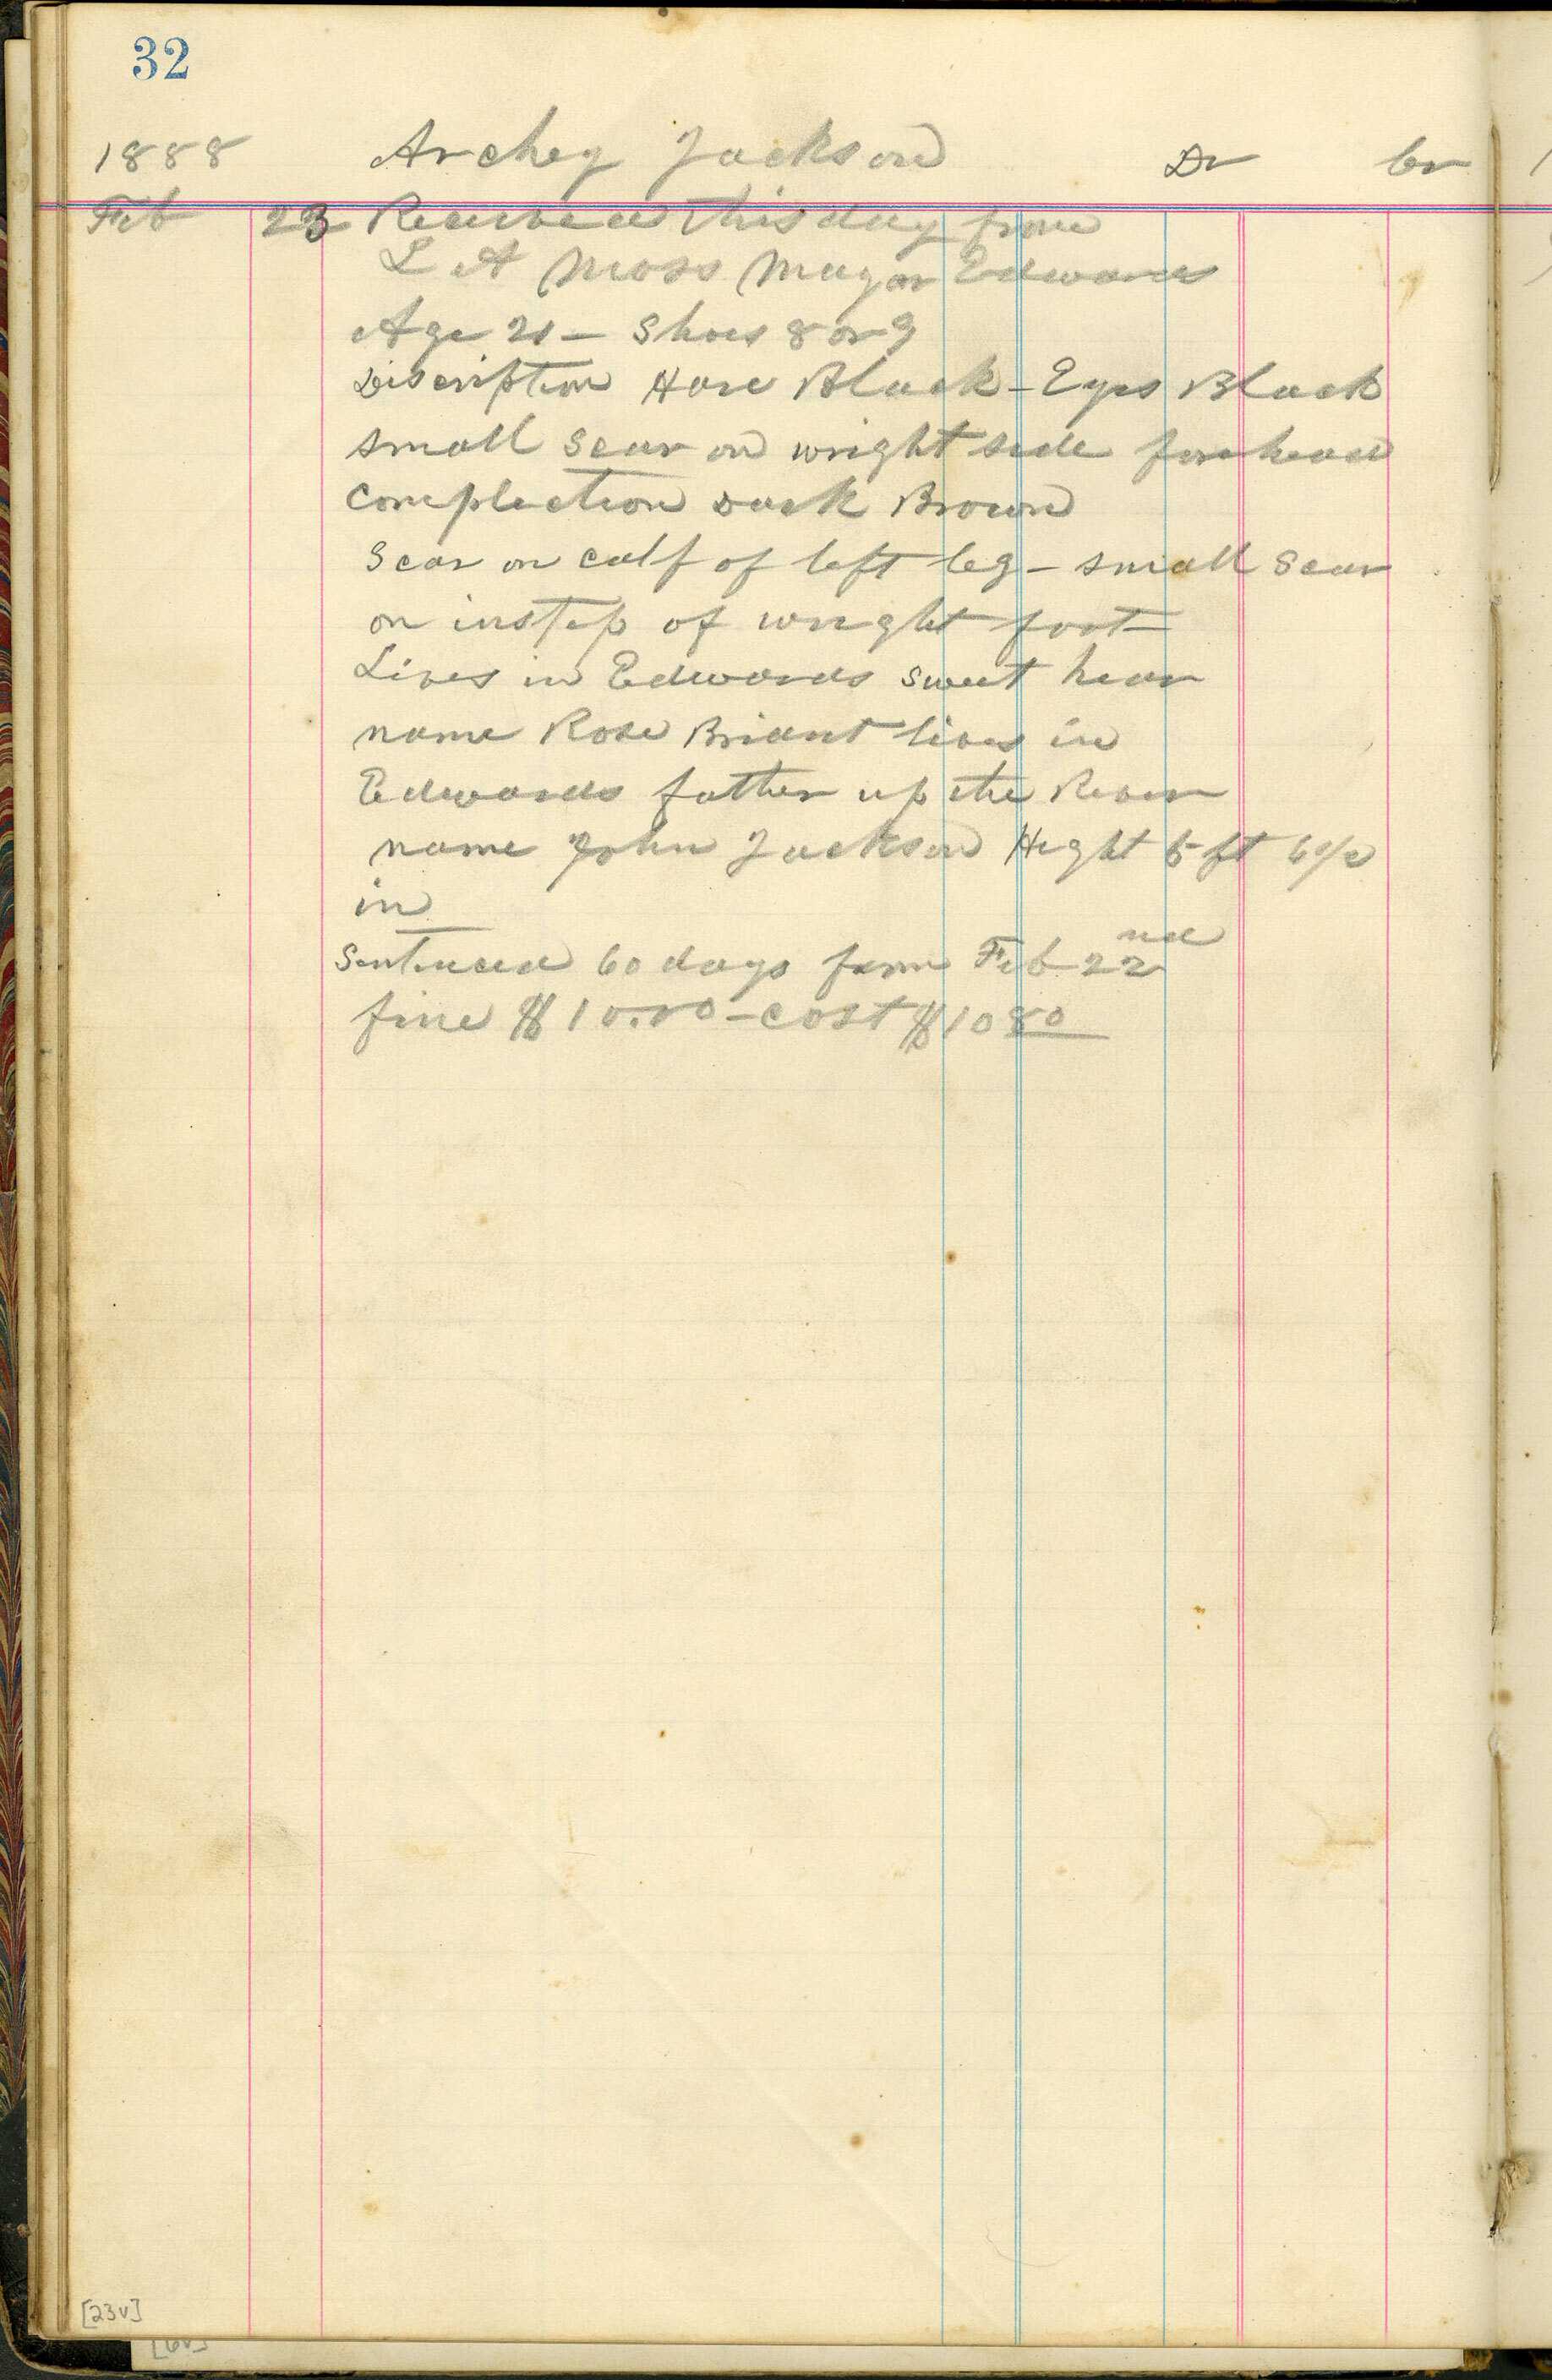 32
1888 Archey Jackson Dr Cr
Feb 23 Received this day from
L A Moss Mayor Edwards
Age 21 - Shoes 8 or 9
Discription Hare Black - Eyes Black
small scar on wright side forehead
complection Dark Brown
Scar on calf of left leg - small scar
on instep of wright foot
Lives in Edwards sweet hear
name Rose Briant lives in
Edwards father up the River
name John Jackson Hight 5 ft 6 1/2
in
Sentenced 60 days from Feb 22nd
fine $10.00 - cost $10 80
[23v]
[6v]